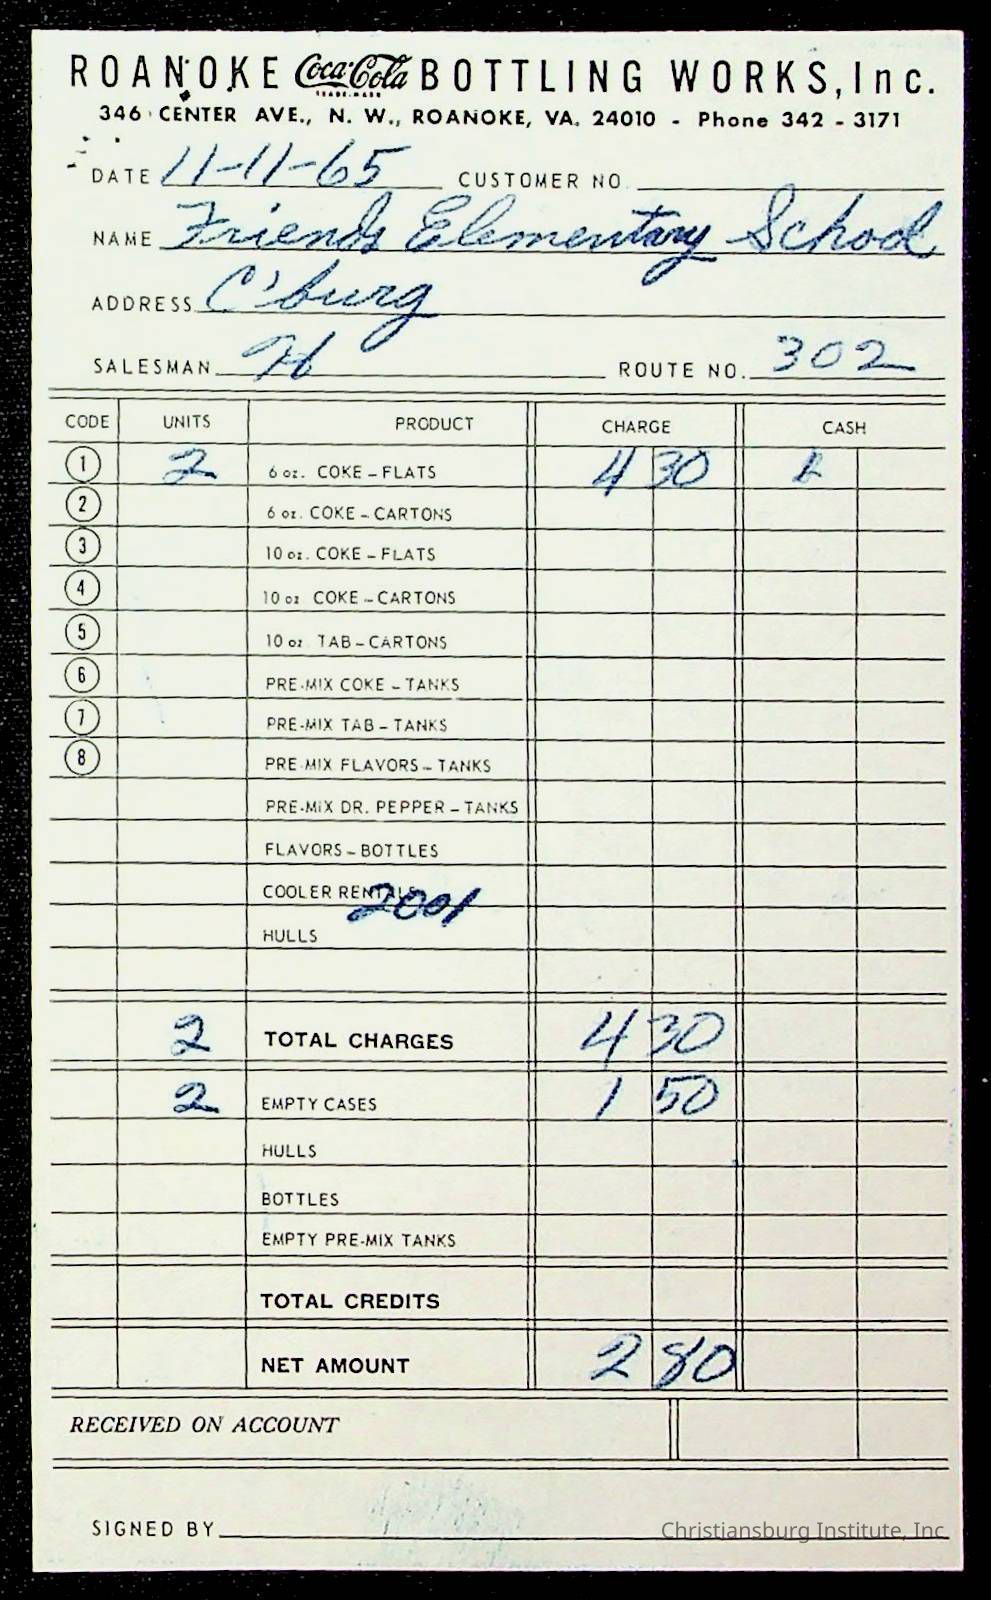 ROANOKE Coca-Cola BOTTLING WORKS, Inc.
TRADE-MARK
346 CENTER AVE., N. W., ROANOKE, VA. 24010 - Phone 342 - 3171
DATE 11-11-65 CUSTOMER NO.
NAME Friends Elementary School
ADDRESS C'burg
SALESMAN H ROUTE NO. 302
CODE UNITS PRODUCT CHARGE CASH
1 2 6 oz. COKE - FLATS 4 30
2 6 oz. COKE - CARTONS
3 10 oz. COKE - FLATS
4 10 oz COKE - CARTONS
5 10 oz. TAB - CARTONS
6 PRE-MIX COKE - TANKS
7 PRE-MIX TAB - TANKS
8 PRE-MIX FLAVORS - TANKS
PRE-MIX DR. PEPPER - TANKS
FLAVORS - BOTTLES
COOLER RENTALS
2001
HULLS
2 TOTAL CHARGES 4 30
2 EMPTY CASES 1 50
HULLS
BOTTLES
EMPTY PRE-MIX TANKS
TOTAL CREDITS
NET AMOUNT 2 80
RECEIVED ON ACCOUNT
SIGNED BY
Christiansburg Institute, Inc